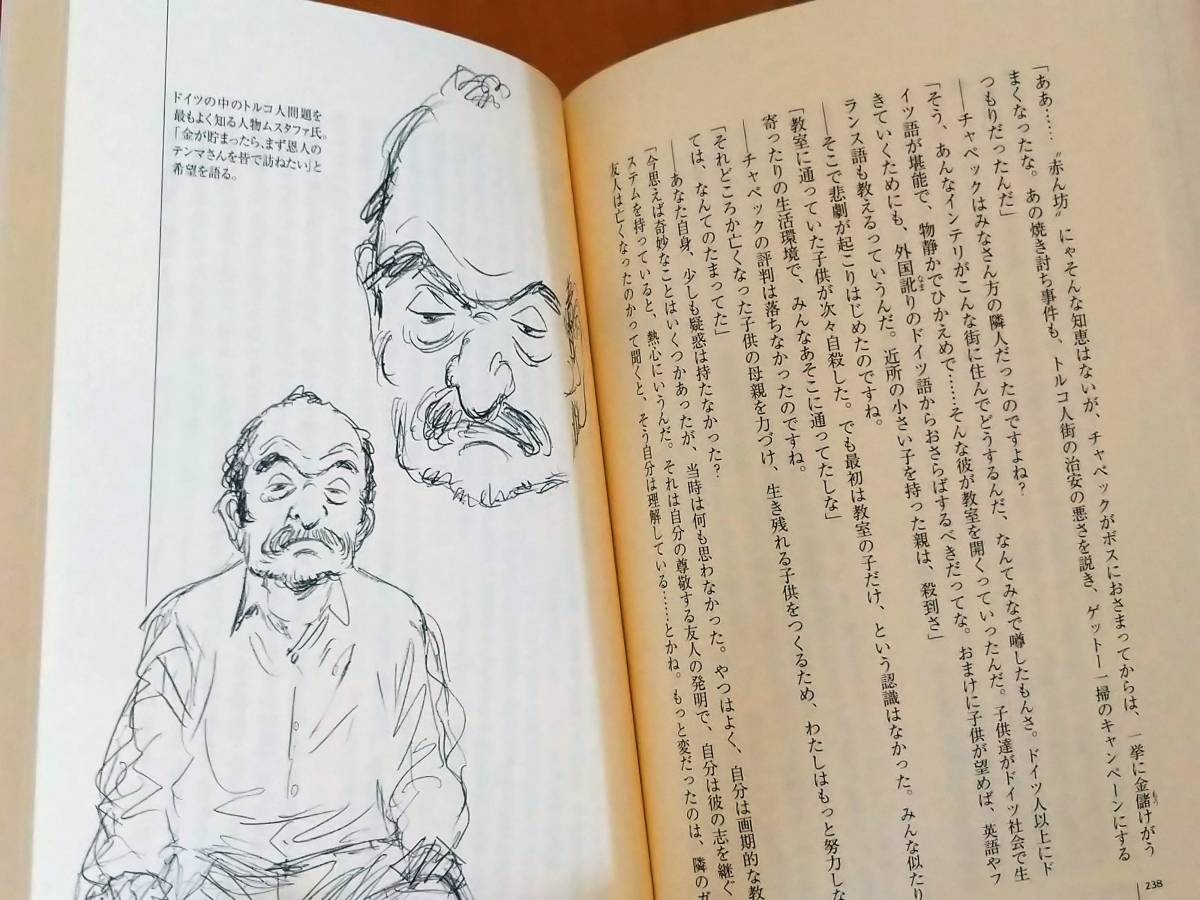 「ああ……〝赤ん坊〟にゃそんな知恵はないが、チャペックがボスにおさまってからは、一挙に金儲けがう
もう
まくなったな。あの焼き討ち事件も、トルコ人街の治安の悪さを説き、ゲットー一掃のキャンペーンにする
つもりだったんだ」
――チャペックはみなさん方の隣人だったのですよね?
「そう、あんなインテリがこんな街に住んでどうするんだ、なんてみなで噂したもんさ。ドイツ人以上にド
イツ語が堪能で、物静かでひかえめで……そんな彼が教室を開くっていったんだ。子供達がドイツ社会で生
きていくためにも、外国訛りのドイツ語からおさらばするべきだってな。おまけに子供が望めば、英語やフ
なま
ランス語も教えるっていうんだ。近所の小さい子を持った親は、殺到さ」
――そこで悲劇が起こりはじめたのですね。
「教室に通っていた子供が次々自殺した。でも最初は教室の子だけ、という認識はなかった。みんな似たり
寄ったりの生活環境で、みんなあそこに通ってたしな」
――チャペックの評判は落ちなかったのですね。
「それどころか亡くなった子供の母親を力づけ、生き残れる子供をつくるため、わたしはもっと努力しな
ては、なんてのたまってた」
――あなた自身、少しも疑惑は持たなかった?
「今思えば奇妙なことはいくつかあったが、当時は何も思わなかった。やつはよく、自分は画期的な教
ステムを持っていると、熱心にいうんだ。それは自分の尊敬する友人の発明で、自分は彼の志を継ぐ
友人は亡くなったのかって聞くと、そう自分は理解している……とかね。もっと変だったのは、隣のガ
238
ドイツの中のトルコ人問題を
最もよく知る人物ムスタファ氏。
「金が貯まったら、まず恩人の
テンマさんを皆で訪ねたい」と
希望を語る。